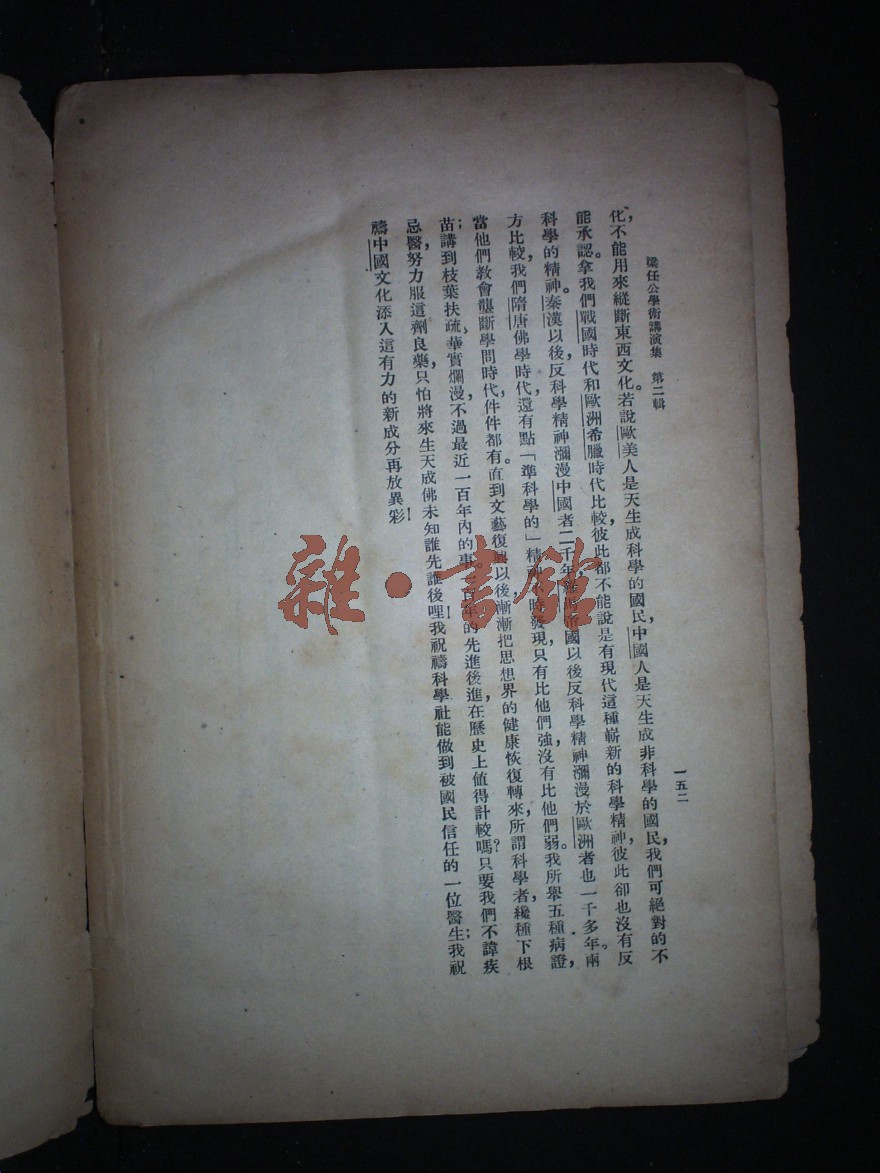 梁任公學術講演集　第二輯
一五二
化，不能用來縱斷東西文化。若說歐美人是天生成科學的國民，中國人是天生成非科學的國民，我們可絕對的不
能承認。拿我們戰國時代和歐洲希臘時代比較，彼此都不能說是有現代這種嶄新的科學精神，彼此卻也沒有反
科學的精神。秦漢以後，反科學精神瀰漫中國者二千年，羅馬帝國以後，反科學精神瀰漫於歐洲者也一千多年。兩
方比較，我們隋唐佛學時代，還有點「準科學的」精神不時發現，只有比他們強，沒有比他們弱。我所舉五種病證，
當他們教會壟斷學問時代，件件都有。直到文藝復興以後，漸漸把思想界的健康恢復轉來，所謂科學者，纔種下根
苗；講到枝葉扶疏，華實爛漫，不過最近一百年內的事。一百年的先進後進，在歷史上值得計較嗎？只要我們不諱疾
忌醫，努力服這劑良藥，只怕將來生天成佛，未知誰先誰後哩！我祝禱科學社能做到被國民信任的一位醫生；我祝
禱中國文化添入這有力的新成分再放異彩！
雜·書館